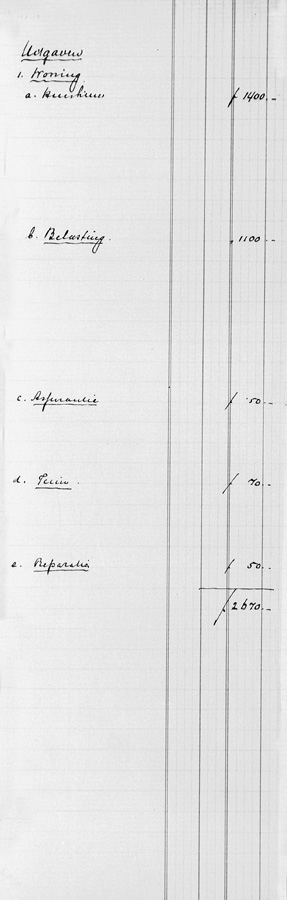 Uitgaven
1. Woning
a. Huishuur ƒ 1400.-
b. Belasting. " 1100.-
c. Assurantie ƒ 50.-
d. Tuin. ƒ 70.-
e. Reparatie ƒ 50.-
ƒ 2670.-